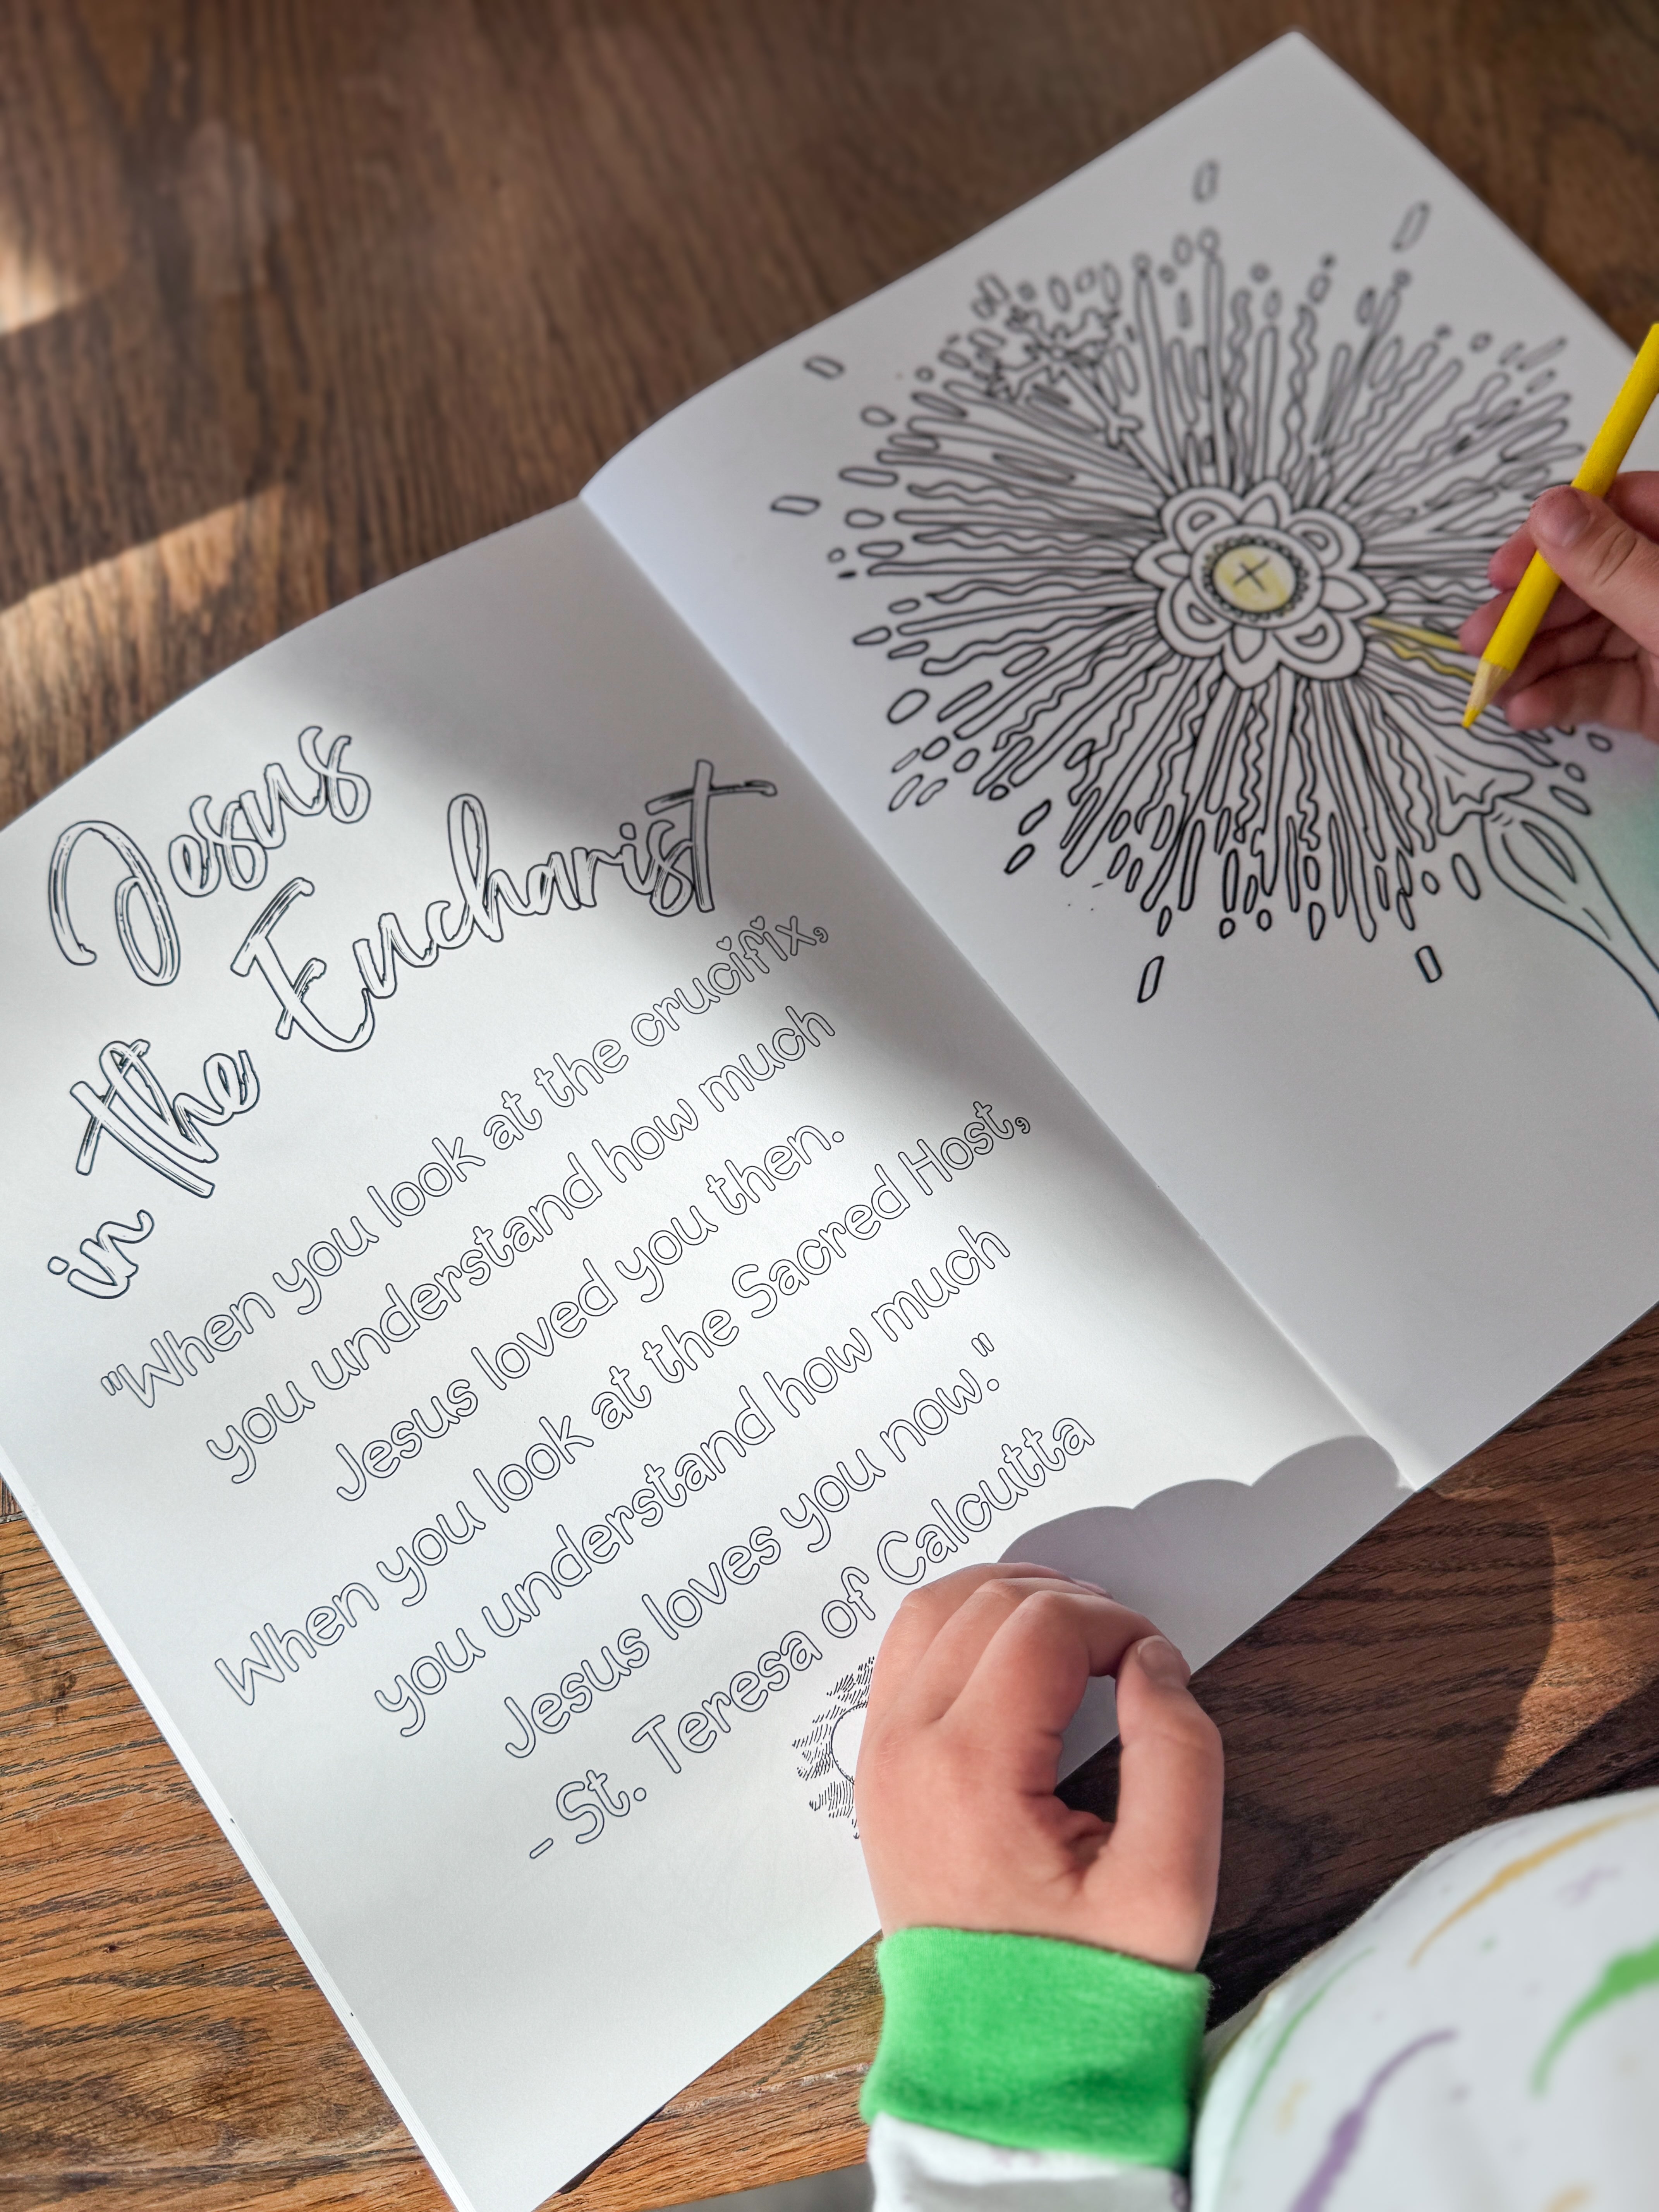 Jesus
in the Eucharist
"When you look at the crucifix,
you understand how much
Jesus loved you then.
When you look at the Sacred Host,
you understand how much
Jesus loves you now."
- St. Teresa of Calcutta